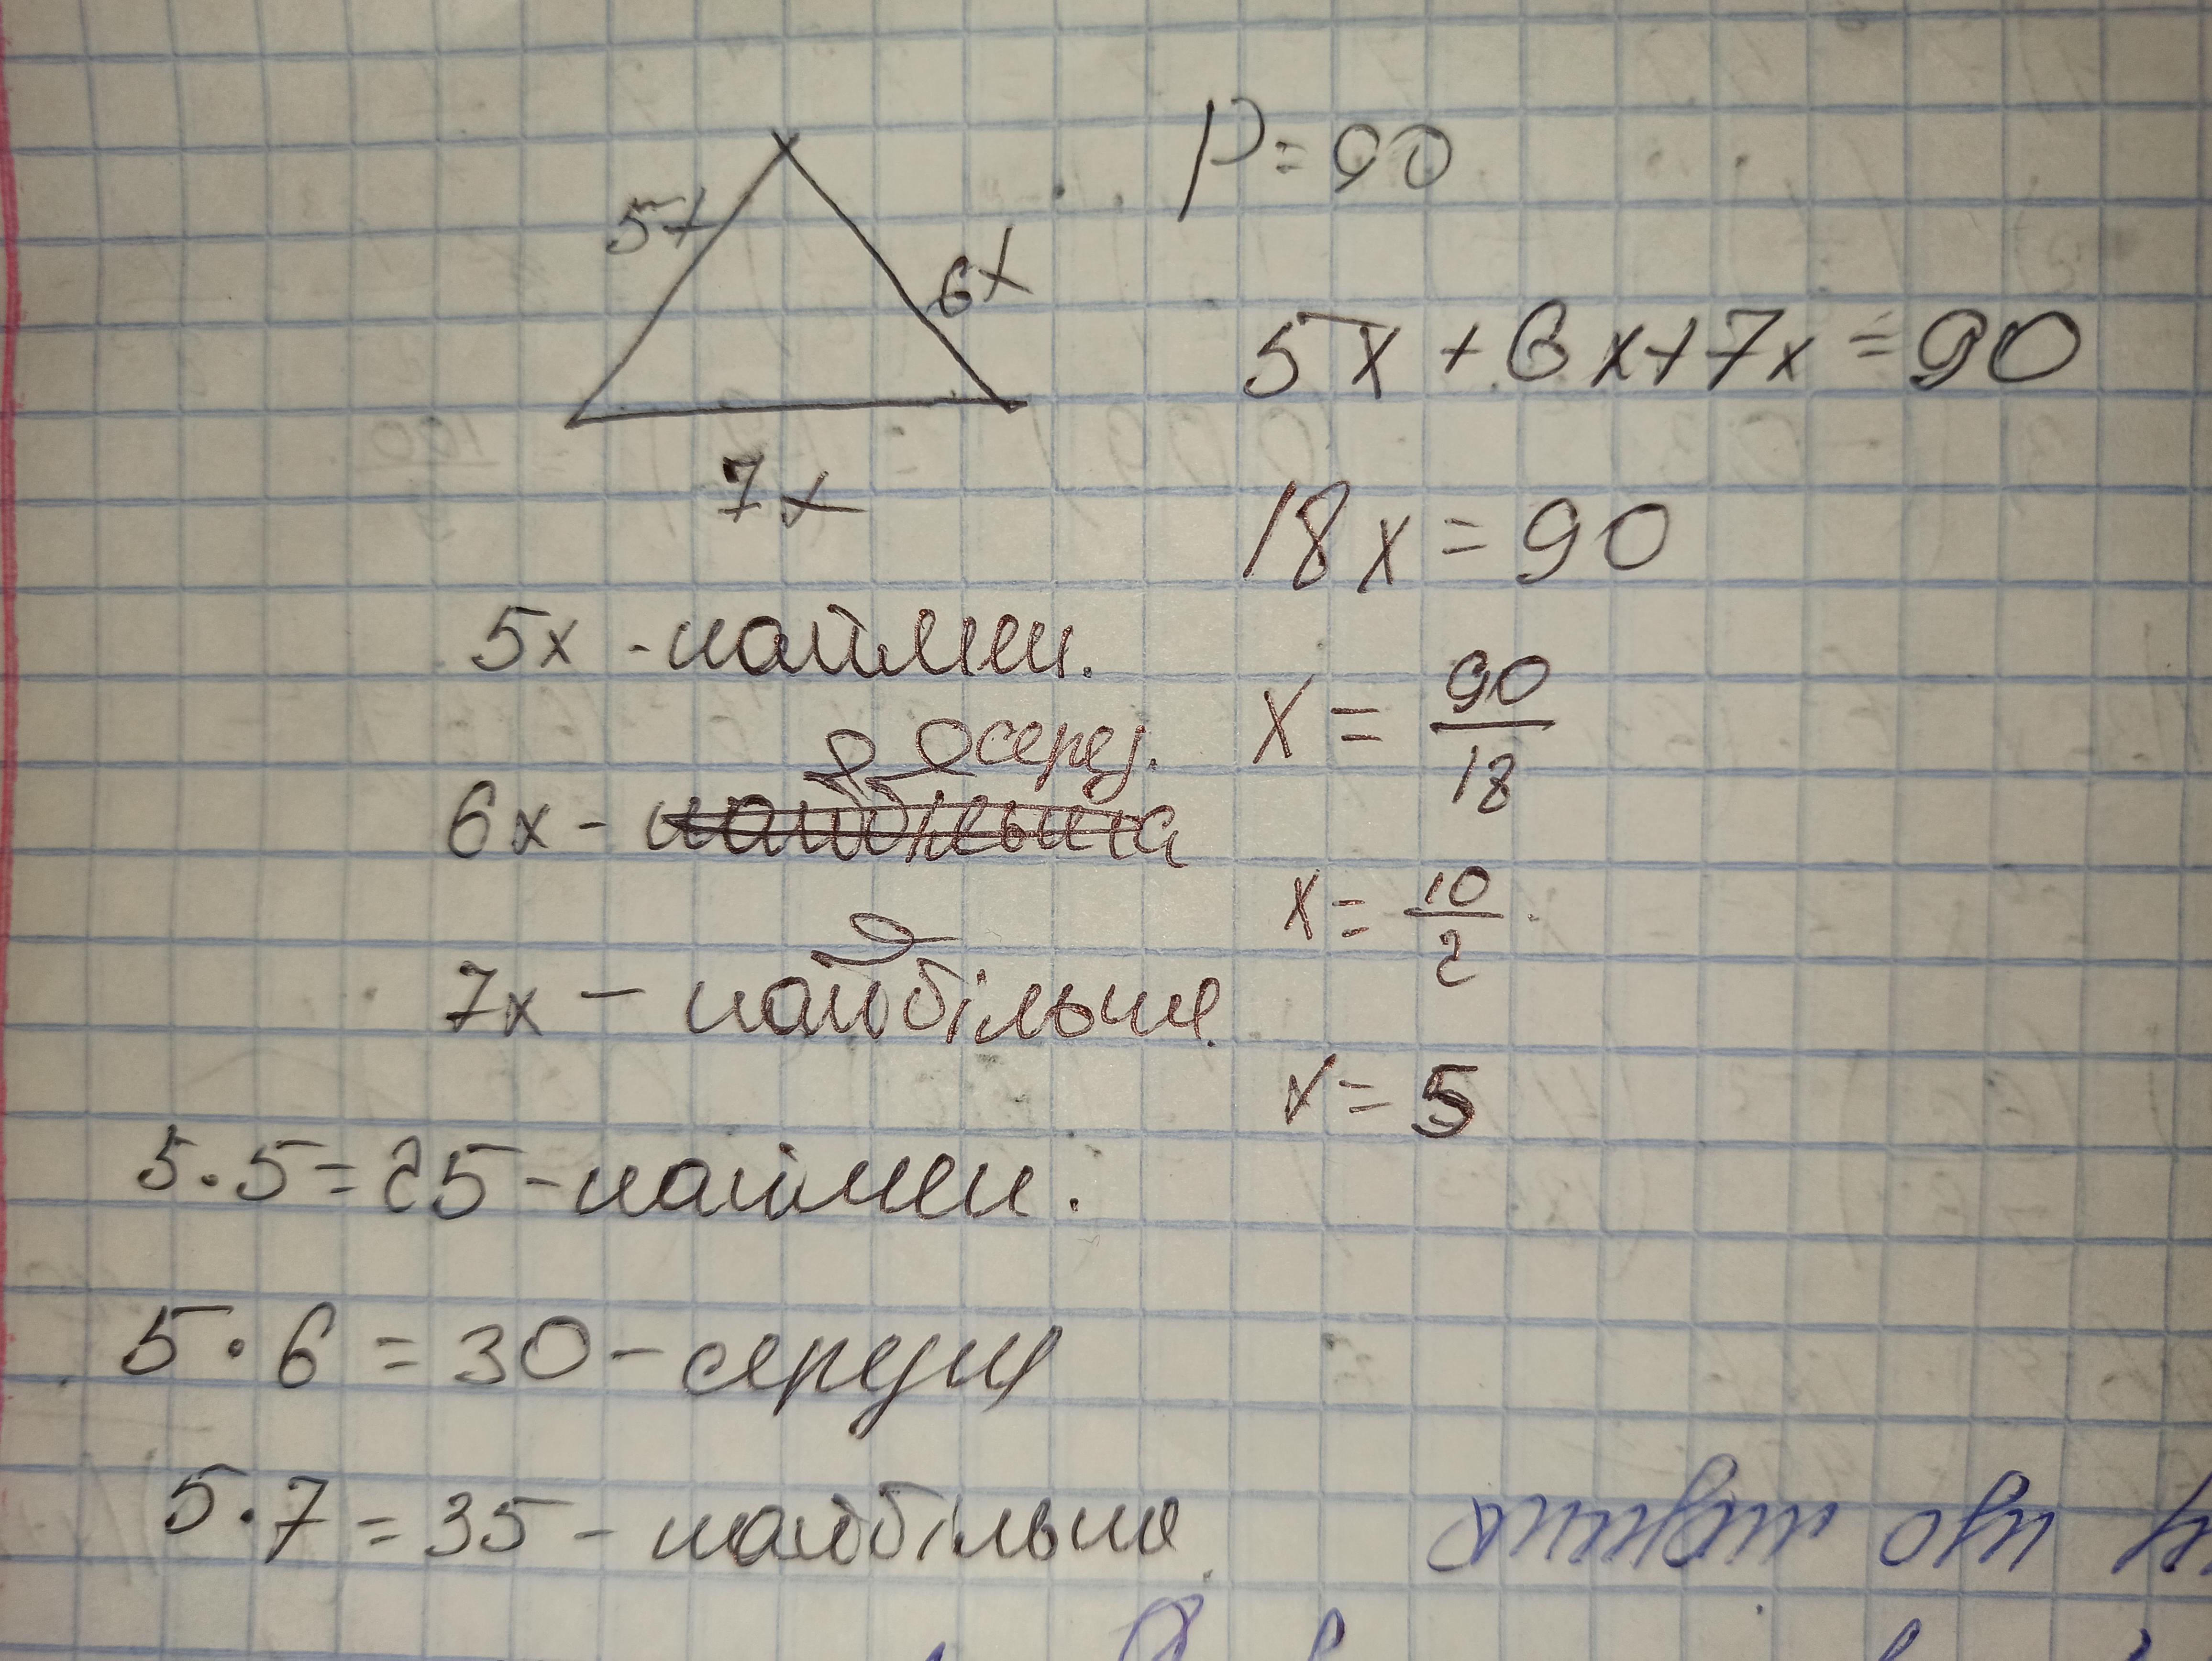 P=90
5x
6x
7x
5x + 6x+7x = 90
18x = 90
5x - наймен.
x = 90/18
серед.
6x - найбільша
x = 10/2
7x - найбільше
x = 5
5·5=25-наймен.
5·6=30-серединя
5·7=35-найбільше